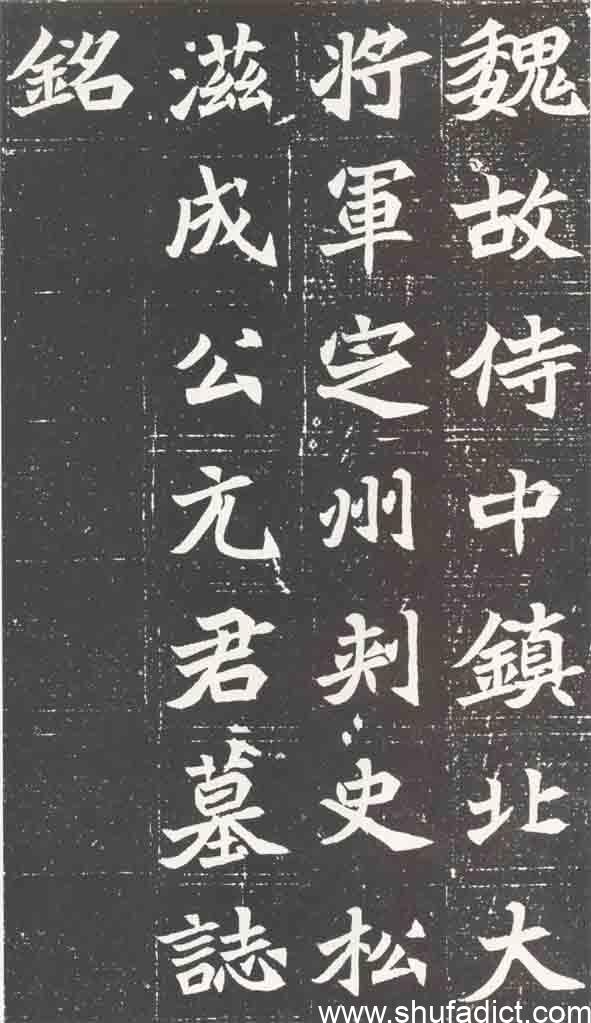 魏故侍中鎮北大
将軍定州刾史松
滋成公元君墓誌
銘
www.shufadict.com